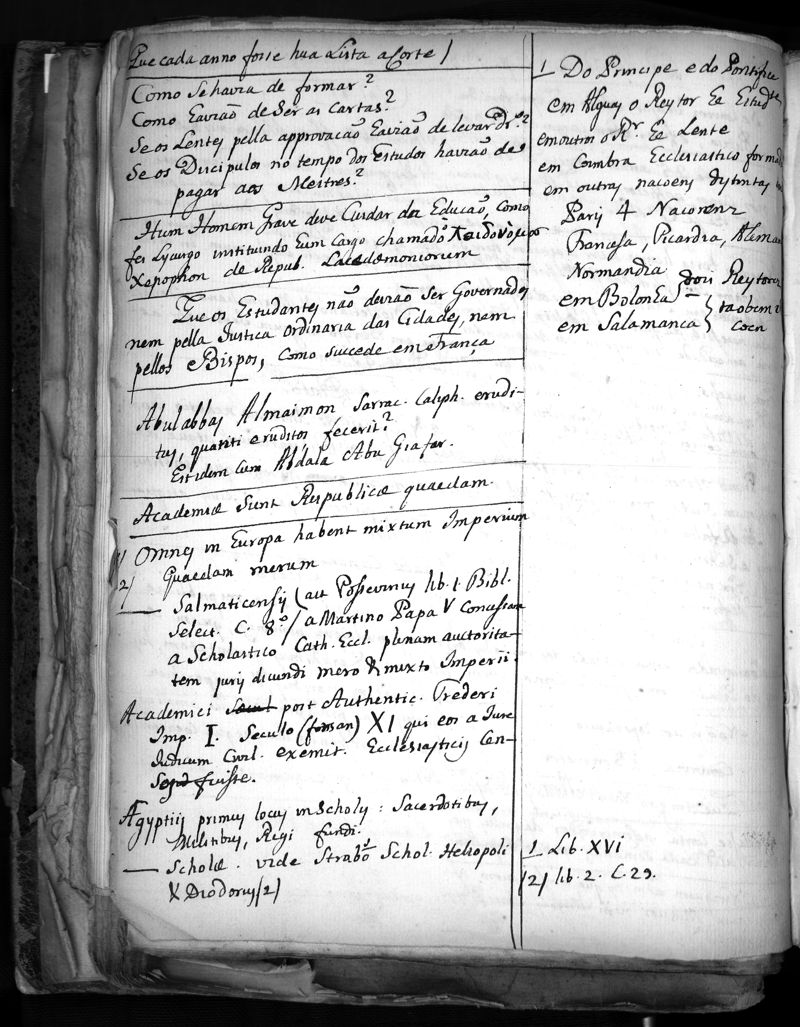 Que cada anno fosse hua Lista a Corte /
Como se havia de formar?
Como Eavião de Ser as Cartas?
Se os Lentes pella approvacaõ Eaviaõ de levar Drº?
Se os Discipulos no tempo dos Estudos haviaõ de
pagar aos Mestres?
Hum Homem Grave deve Cuidar da Educaõ, como
fes Lycurgo instituindo Eum Cargo chamado Παιδονόμος
Xenophon de Repub. Lacedemoniorum
Que os Estudantes naõ deviaõ ser Governados
nem pella Justica ordinaria das Cidades, nem
pellos Bispos, como succede em França
Abulabbas Almaimon Sarrac. Caliph. erudi-
tus, quanti eruditos fecerit?
Est idem cum Abdala Abu Giafar.
Academiæ Sunt Respublicæ quaedam.
1) Omnes in Europa habent mixtum Imperium
2) Quaedam merum
— Salmaticensis (aut Possevinus lib. 1. Bibl.
Select. C. 8.º) a Martino Papa V Concessam
a Scholastico Cath. Eccl. plenam auctorita-
tem juris dicundi mero & mixto Imperii.
Academici post Authentic. Frederi
Imp. I. Seculo (forsan) XI qui eos a Jure
Judicum Civil. exemit. Ecclesiasticis Cen-
fuisse.
Ægyptiis primus locus in Scholis: Sacerdotibus,
Militibus, Regi fundi.
— Scholæ. vide Strabõ¹ Schol. Heliopoli
& Diodorus (2)
1 Do Principe e do Pontifice
em Alguns o Reytor Ee Estudte
em outros o Rr. Ee Lente
em Coimbra Ecclesiastico formado
em outras nacoens dystintas
Paris 4 Nacoens
Francesa, Picardia, Aleman
Normandia
em Bolonha — dois Reytores
em Salamanca } taobem 2
1 Lib. XVI
(2) lib. 2. C. 29.